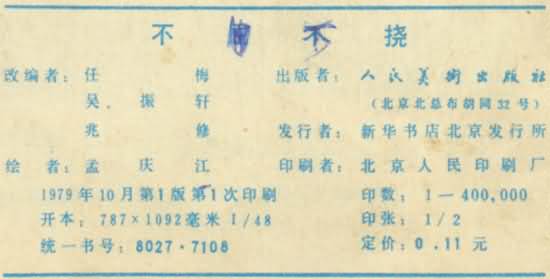 不 不挠
改编者：任 梅
吴 振 轩
兆 修
绘者：孟庆江
1979年10月第1版第1次印刷
开本：787×1092毫米 1/48
统一书号：8027·7108
出版者：人民美术出版社
（北京北总布胡同32号）
发行者：新华书店北京发行所
印刷者：北京人民印刷厂
印数：1—400,000
印张：1/2
定价：0.11元